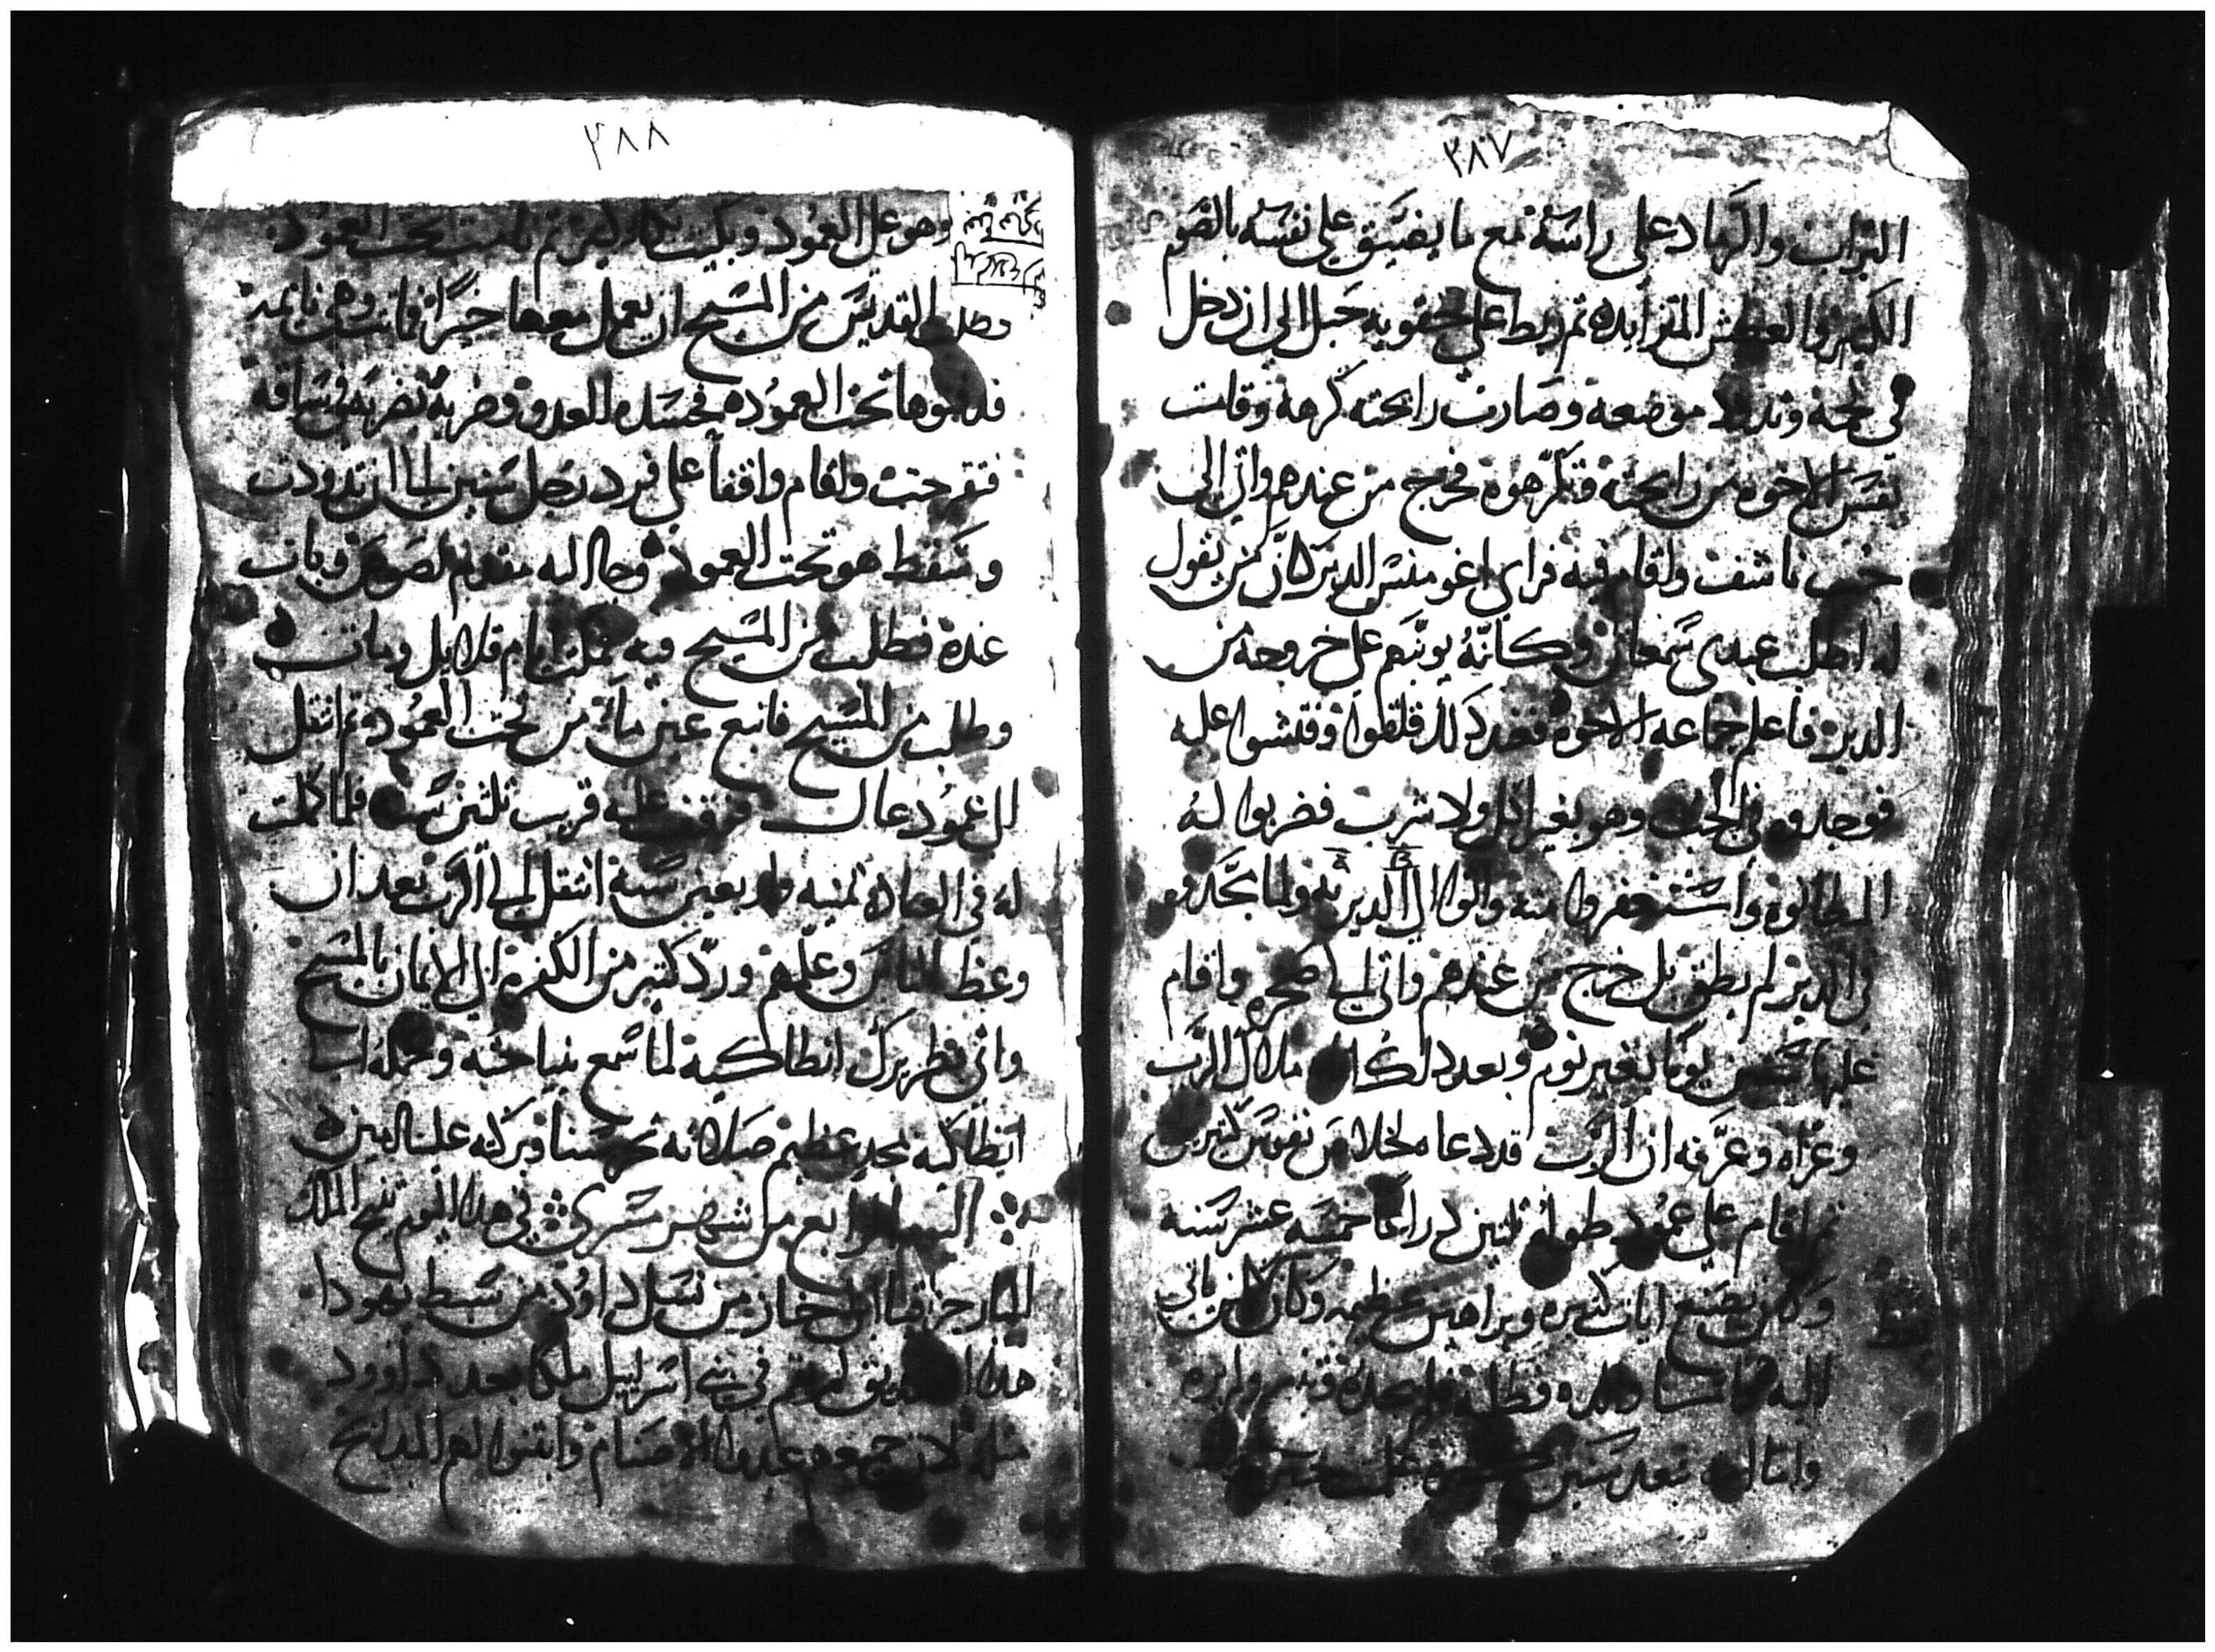 ٢٨٧
التراب والرماد على راسه مع ما يضيق على نفسه بالصوم
الكثير والعطش المتزايده ثم ربط على حقويه حبل الى ان دخل
في لحمه وتدود موضعه وصارت رايحته كرهة وقلقت
نفس الاخوه من رايحته فتكرهوه فخرج من عندهم واتى الى
جب ناشف واقام فيه فراى اغومنس الدير كان من يقول
له اطلب عبدى سمعان وكانه يوبخهم على خروجه من
الدير فاعلم جماعه الاخوه فعند ذلك قلقوا وفتشوا عليه
فوجدوه في الجب وهو بغير اكل ولا شرب فضربوا له
المطانوه واستغفروا منه واتوا الى الدير به ولما مجدوه
في الدير لم يطق بل خرج من عندهم واتى الى صخره واقام
عليها ستين يوما بغير نوم وبعد ذلك اتاه ملاك الرب
وعزاه وعرفه ان الرب قد دعا لخلاص نفوس كثيرين
ثم اقام على عمود طوله ثلثين دراعا خمسه عشر سنه
وكان يصنع ايات كثيره وبراهين عظيمه وكان كل من ياتى
اليه وطلبه فلم يجده
واما بعد سنين
٢٨٨
وهو على العمود وبكيت بكا كثير ثم نامت تحت العمود
وطلب القديس من المسيح ان يعمل معها خيرا فماتت وهي نايمه
فدفنوها تحت العمود فحسده العدو وضربه بضربه في ساقه
فتقرحت واقام واقفا على فرد رجل سنين الى ان تدودت
وسقط هو تحت العمود وجا اليه مقدم لصوص وبات
عنده فطلب من المسيح فيه فمكث ايام قلايل ومات
وطلب من المسيح فانبع عين ماء من تحت العمود ثم انتقل
الى عمود عال فوقف عليه قرب ثلثين سنه فلما كملت
له في العباده ثمنيه واربعين سنة انتقل الى الرب بعد ان
وعظ الناس وعلمهم ورد كثير من الكفره الى الايمان بالمسيح
واتى بطريرك انطاكية لما سمع بنياحته وحمله الى
انطاكيه بمجد عظيم صلاته تحرسنا وبركته علينا امين
اليوم الرابع من شهر مسرى في هذا اليوم تنيح الملك
البار حزقيا ابن احاز من نسل داوود من سبط يهودا
هذا الصديق لم يقم في بني اسرييل ملكا بعد داوود
مثله لان جميعهم عبدوا الاصنام وابتنوا لهم المدابح